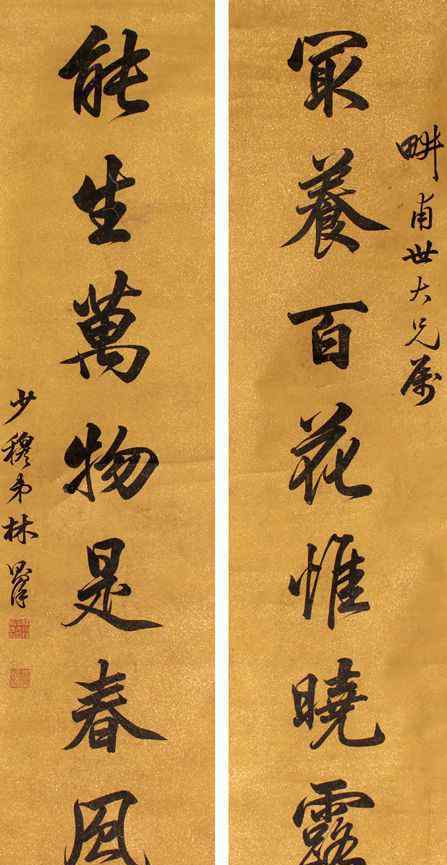 畊甫世大兄屬
冣養百花惟曉露
能生萬物是春風
少穆弟林則徐